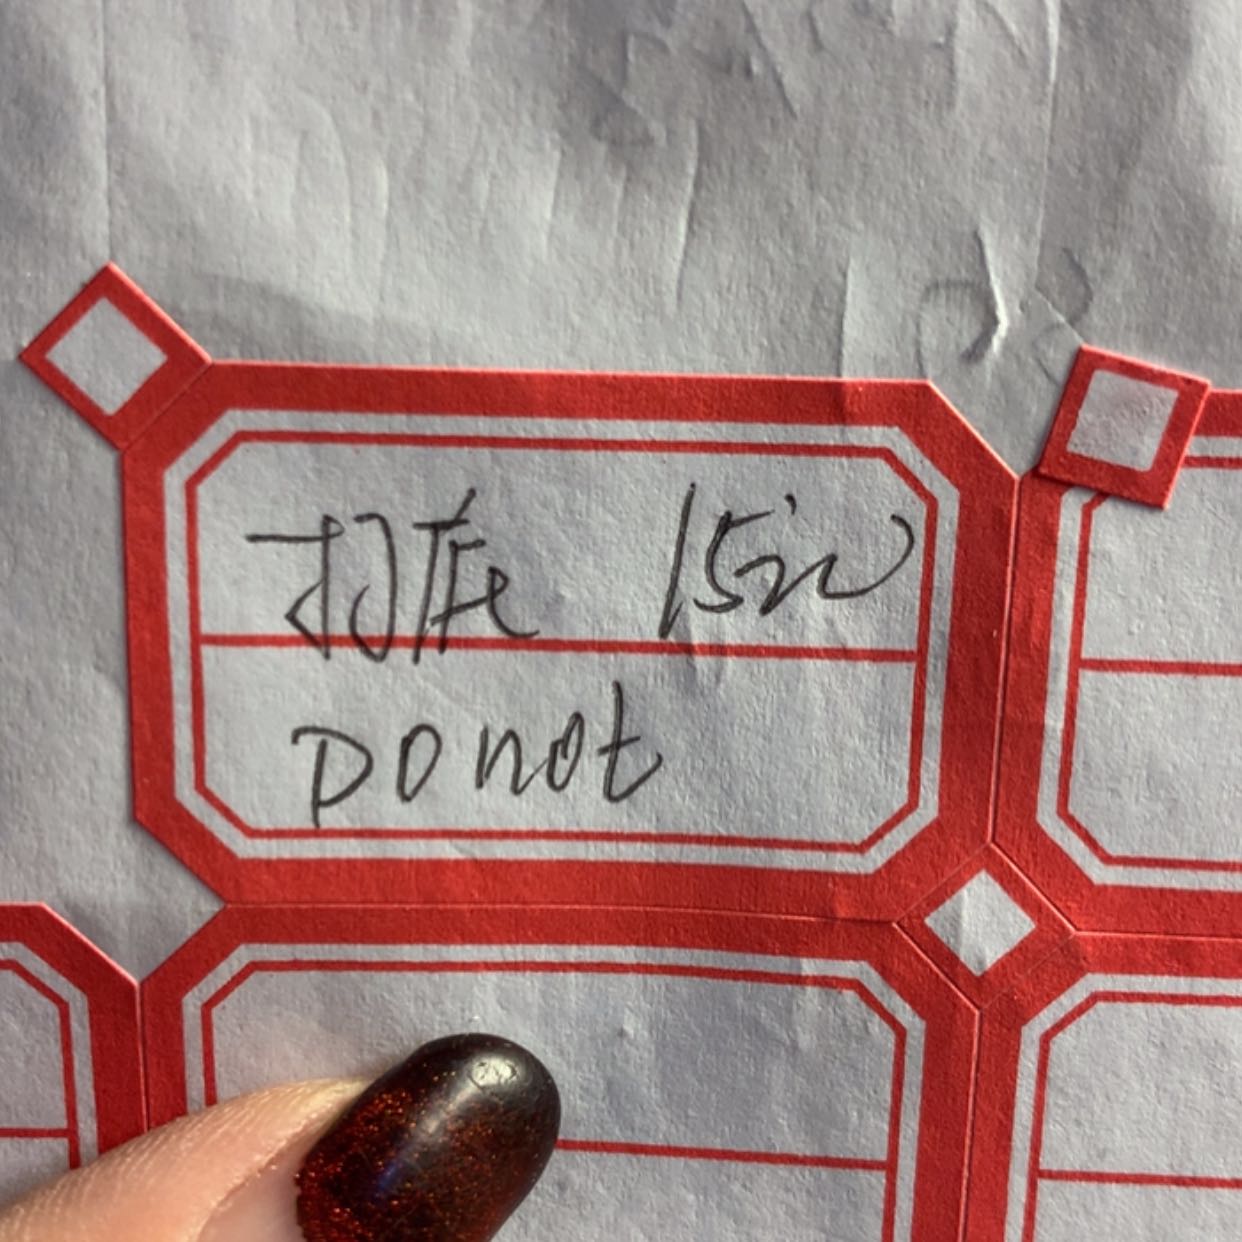 打底 15’
Do not